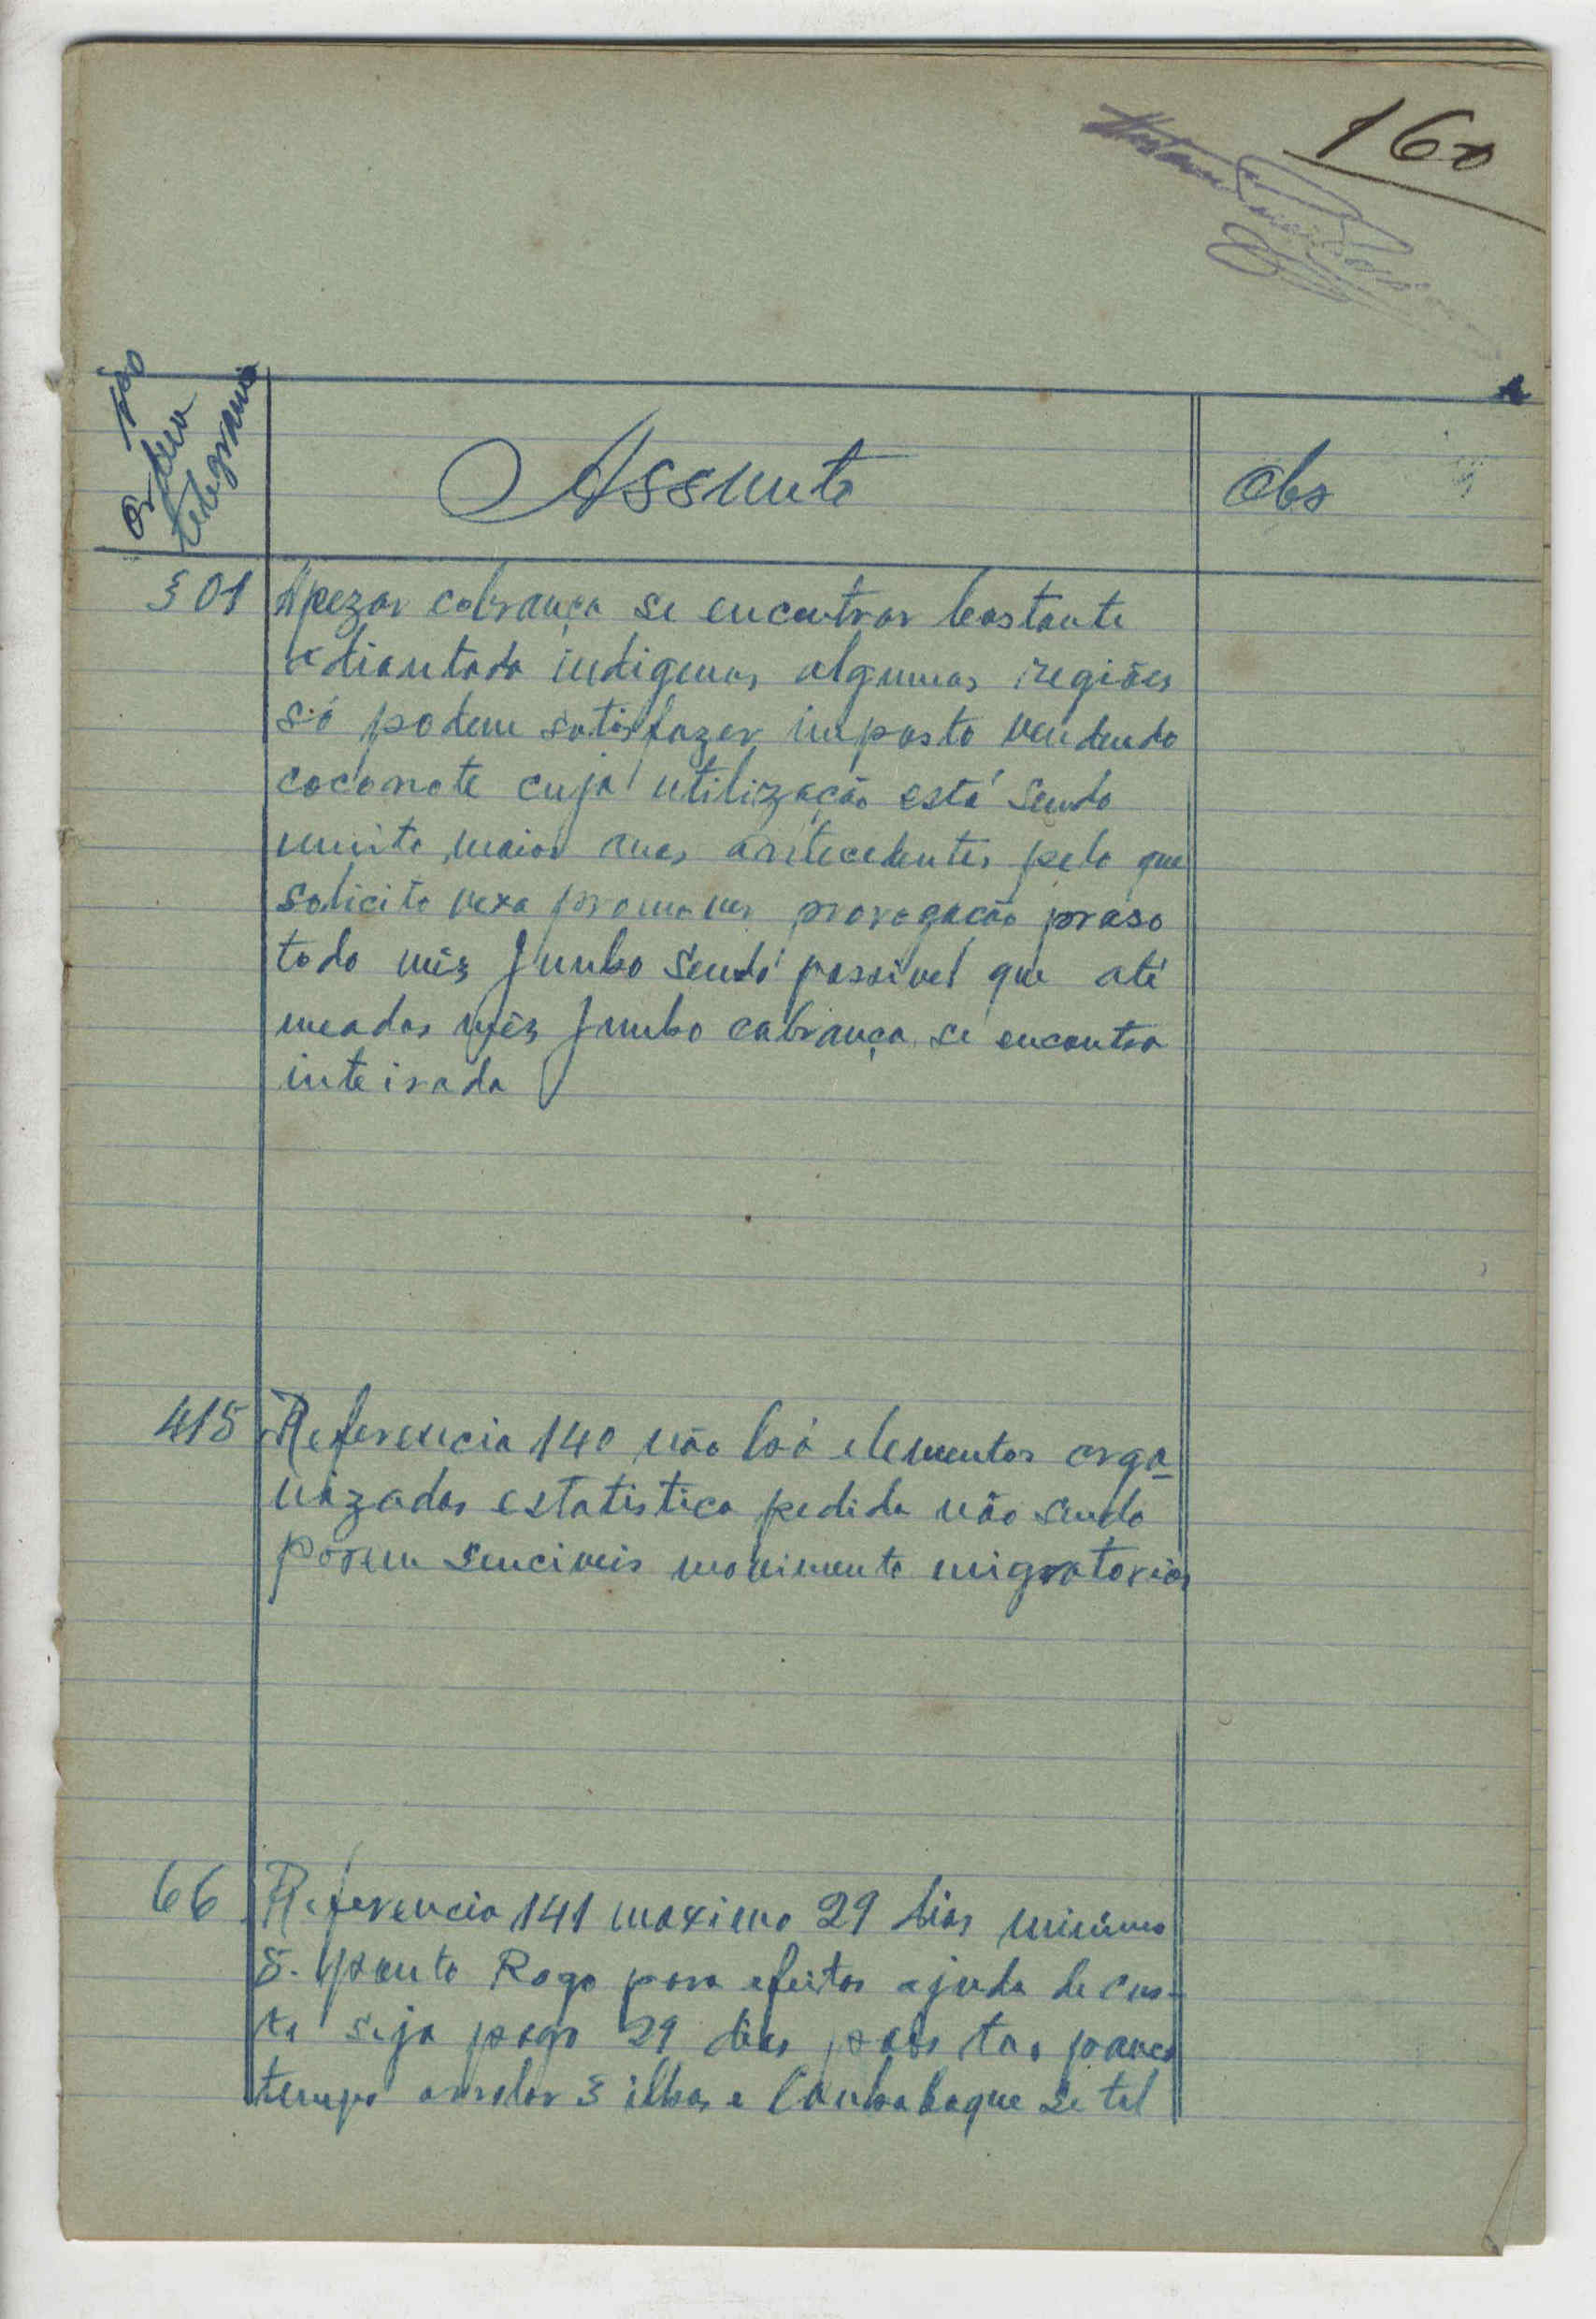 160
Nº
ordem
telegrama
Assunto
Obs
301
Apezar cobrança se encontrar bastante
adiantada indigenas algumas regiões
só podem satisfazer imposto vendendo
coconote cuja utilização está sendo
muito maior anos antecedentes pelo que
solicito vexa promover prorogação praso
todo mês Junho sendo possivel que até
meados mês Junho cobrança se encontra
inteirada
415
Referencia 140 não há elementos orga-
nizados estatistica pedida não sendo
porem senciveis movimento migratorios
66
Referencia 141 maximo 29 dias minimo
5. ponto Rogo para efeitos ajuda de cus-
ta seja pago 29 dias pois tão pouco
tempo arrolar 3 ilhas e Canhabaque se tal